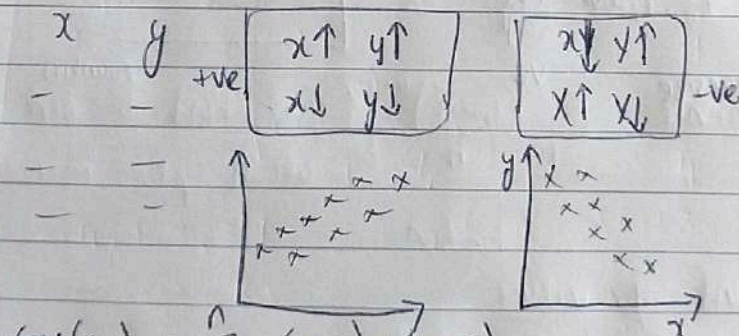 x y
+ve x↑ y↑ x↓ y↑
x↓ y↓ X↑ X↓ -ve
y
x